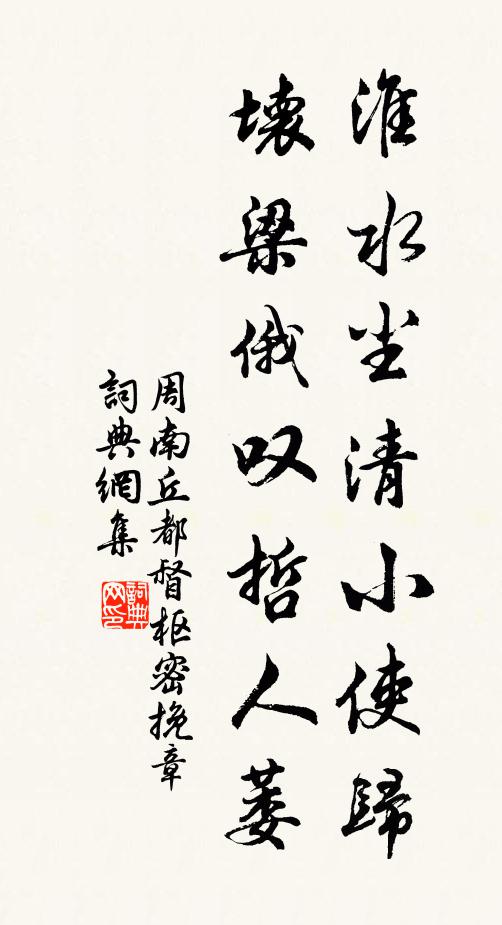 淮水尘清小使歸
壞梁俄叹哲人萎
周南丘都督枢密挽章
詞典網集
詞典网印